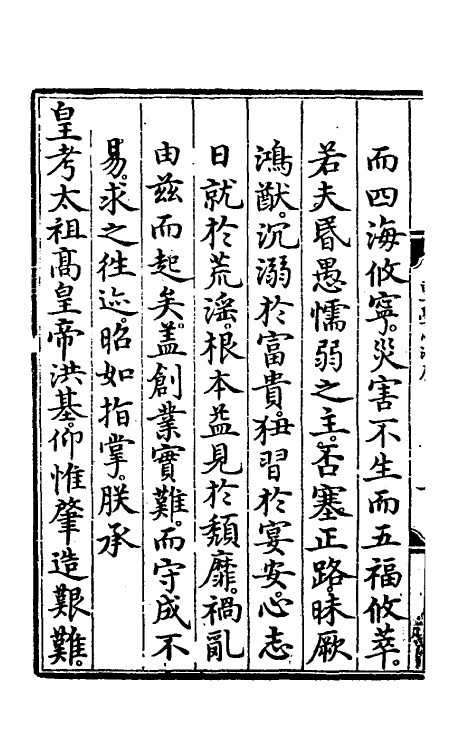 而四海攸寧。災害不生而五福攸萃。
若夫昬愚懦弱之主。否塞正路。昧厥
鴻猷。沉溺於富貴。狃習於宴安。心志
日就於荒淫。根本益見於頹靡。禍亂
由茲而起矣。盖創業實難。而守成不
易。求之徃迹。昭如指掌。朕承
皇考太祖高皇帝洪基。仰惟肇造艱難。